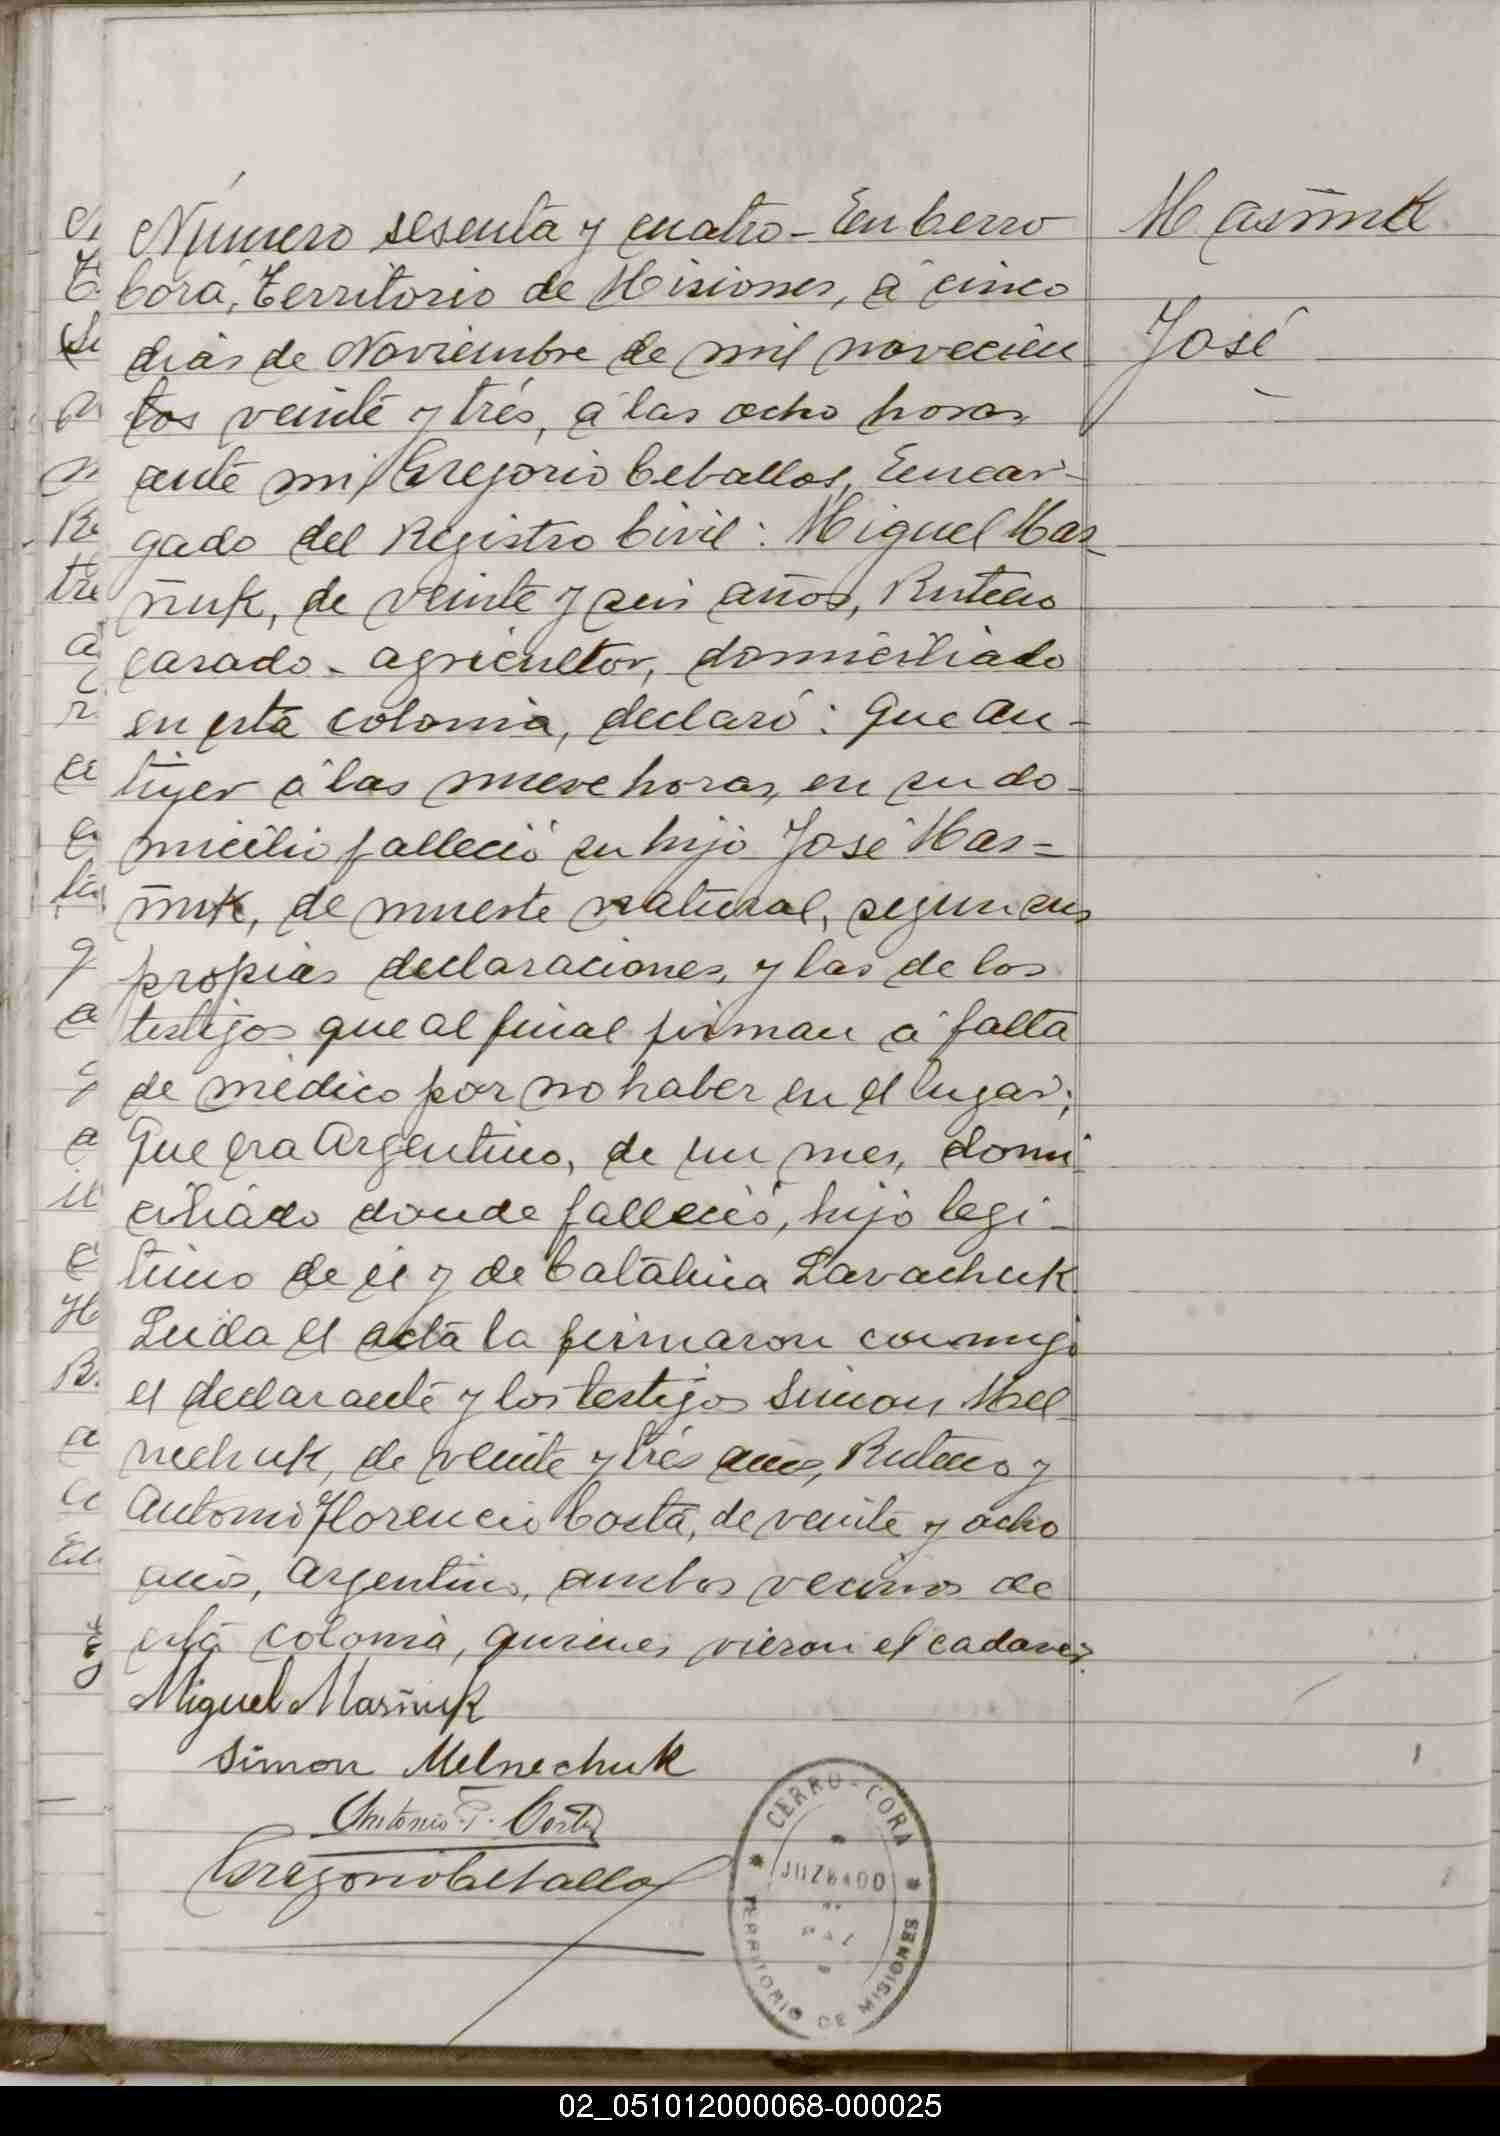 Número sesenta y cuatro - En Cerro
Corá, Territorio de Misiones, á cinco
dias de Noviembre de mil novecien
tos veinte y trés, á las ocho horas,
ante mi, Gregorio Ceballos, Encar-
gado del Registro Civil: Miguel Mas-
ñuk, de veinte y seis años, Ruteno
casado - agricultor, domiciliado
en esta colonia, declaró: Que an-
tiyer á las nueve horas, en su do-
micilio falleció su hijo José Mas=
ñuk, de muerte natural, segun sus
propias declaraciones, y las de los
testigos que al final firman á falta
de médico por no haber en el lugar;
Que era Argentino, de un mes, domi
ciliado donde falleció, hijo legi-
timo de él y de Catalina Lavachuk
Leida el acta la firmaron conmigo
el declarante y los testigos Simon Mel-
nechuk, de veinte y trés años, Ruteno y
Antonio Florencio Costa, de veinte y ocho
años, Argentino, ambos vecinos de
esta colonia, quienes vieron el cadaver.
Miguel Masñuk
Simon Melnechuk
Antonio F. Costa
Gregorio Ceballos
Masñuk
José
CERRO-CORA
JUZGADO
DE PAZ
TERRITORIO DE MISIONES
02_051012000068-000025